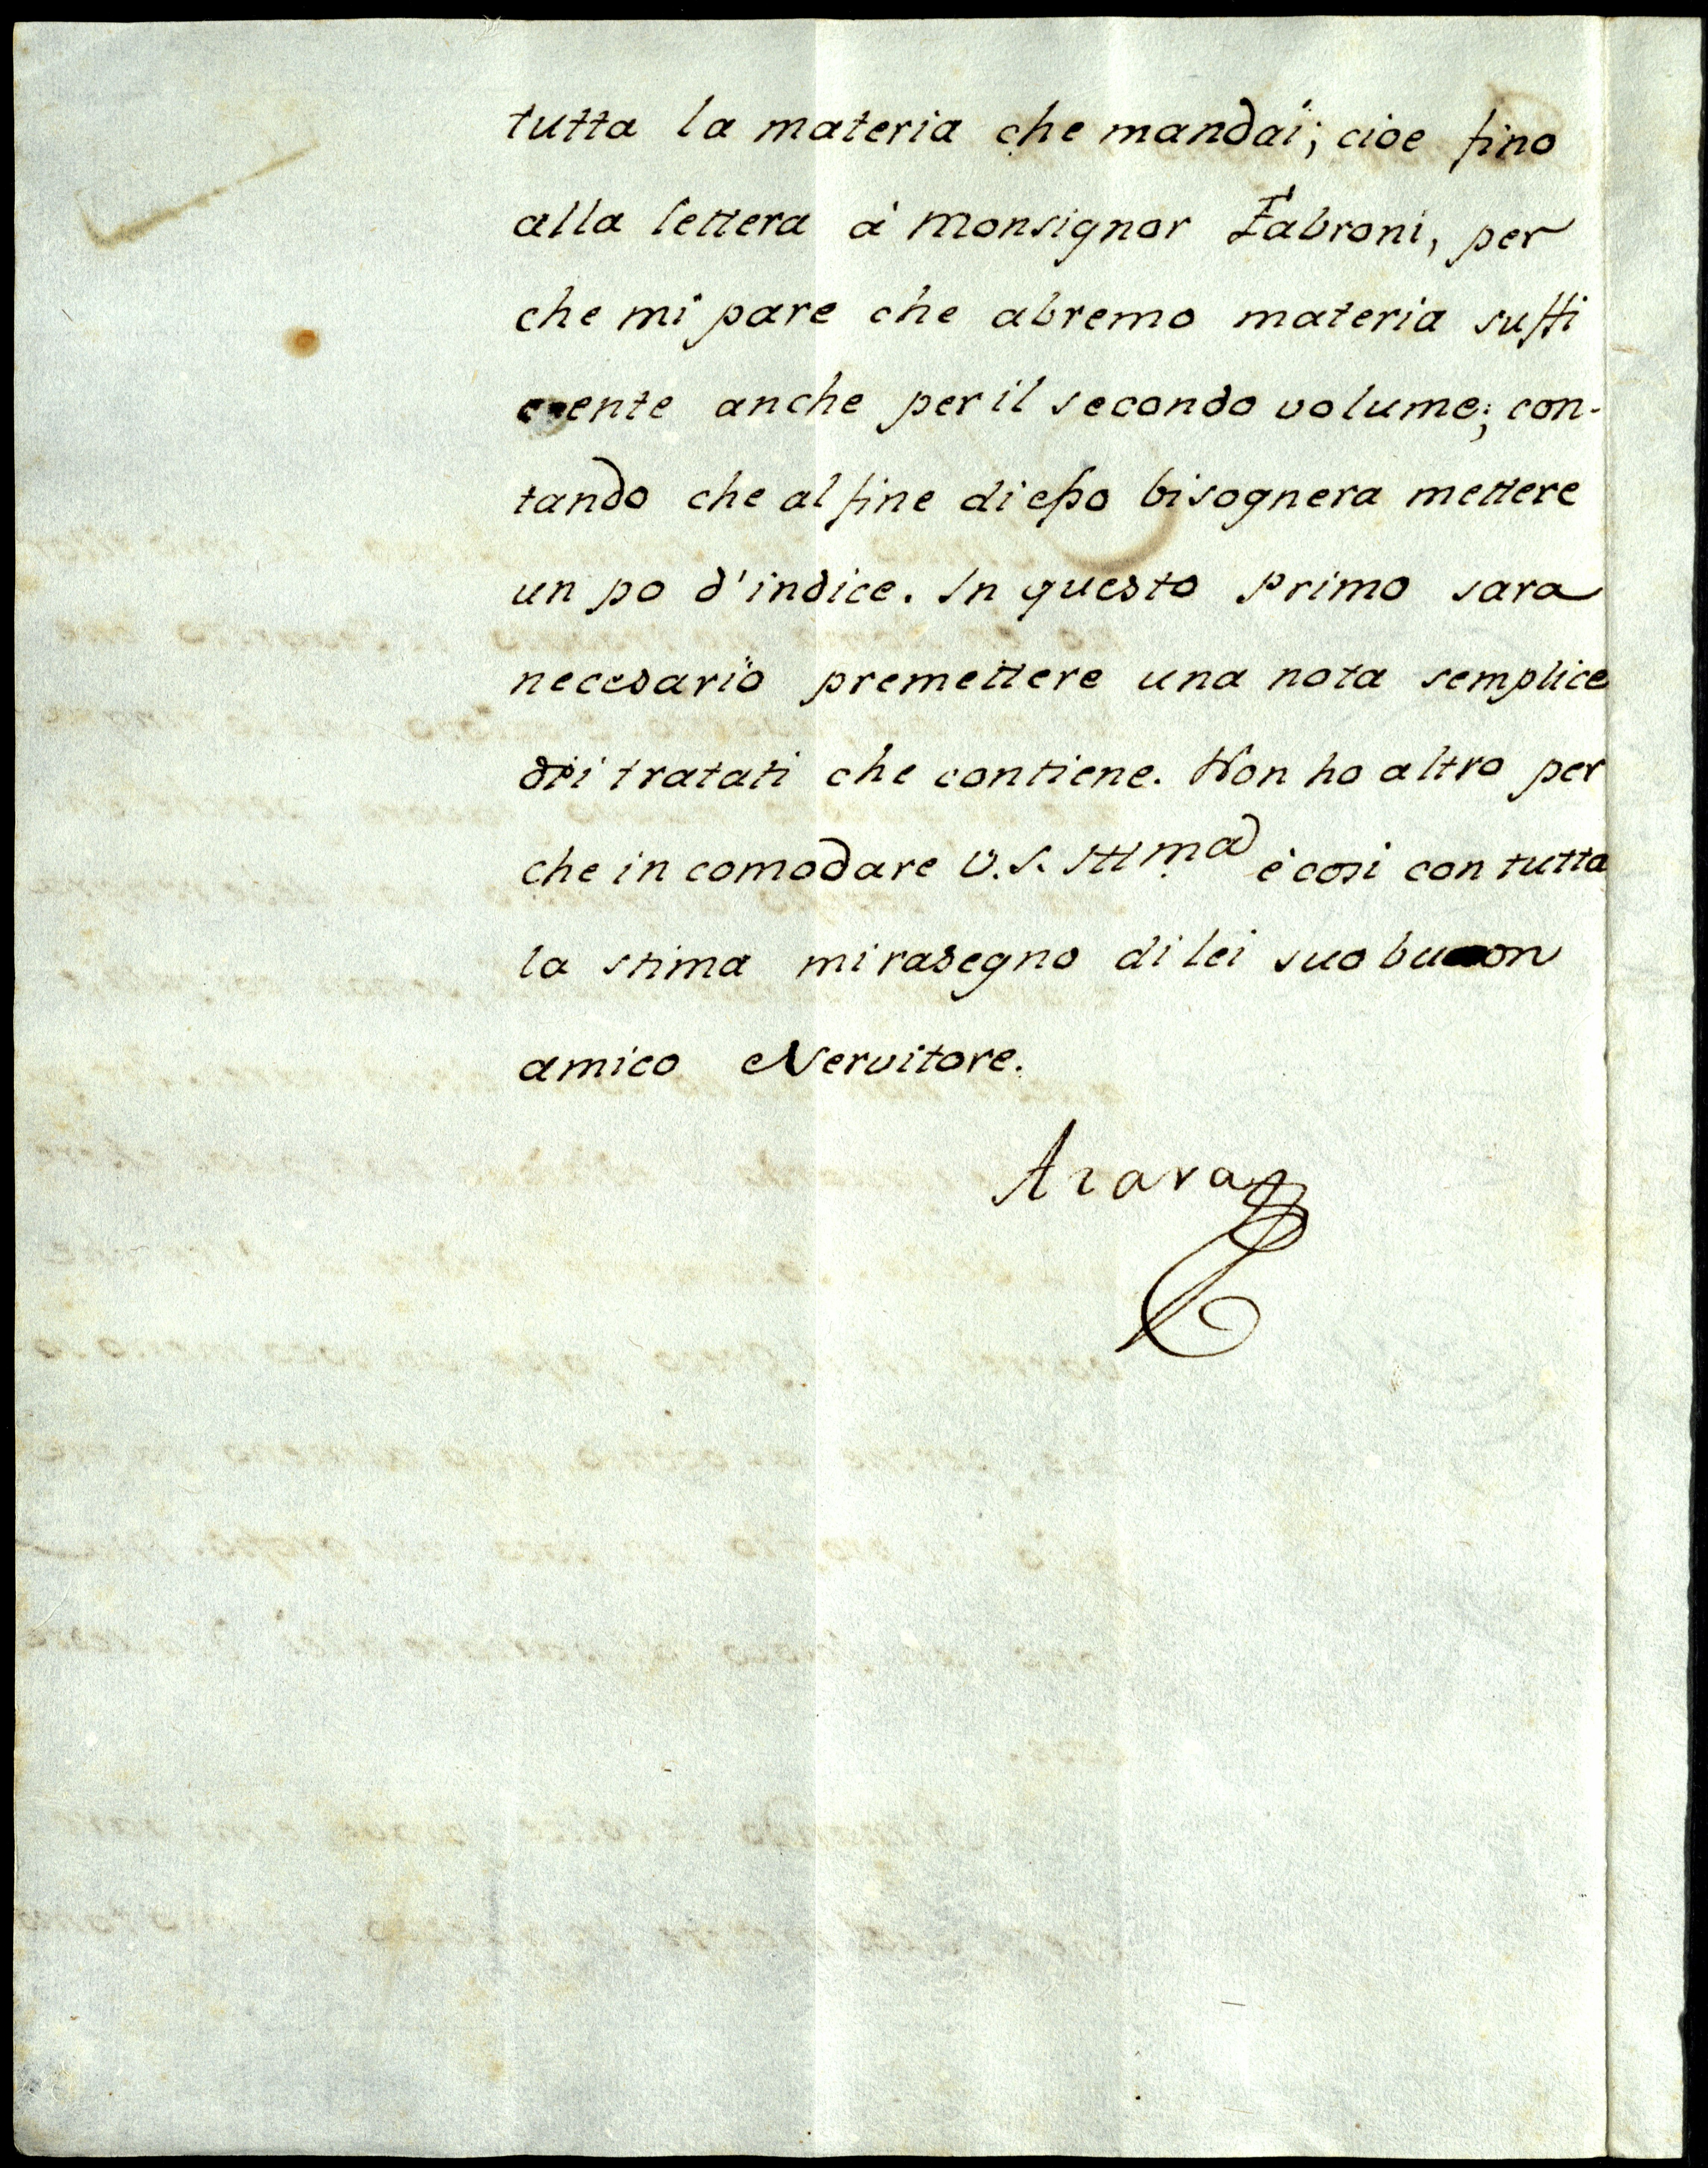 tutta la materia che mandai; cioe fino
alla lettera à Monsignor Fabroni, per
che mi pare che abremo materia suffi
ciente anche per il secondo volume; con-
tando che al fine di esso bisognera mettere
un po d'indice. In questo primo sara
necesario premettere una nota semplice
dei tratati che contiene. Non ho altro per
che in comodare V.S. Illma è cosi con tutta
la stima mi rasegno di lei suo buon
amico e Servitore.
Azara